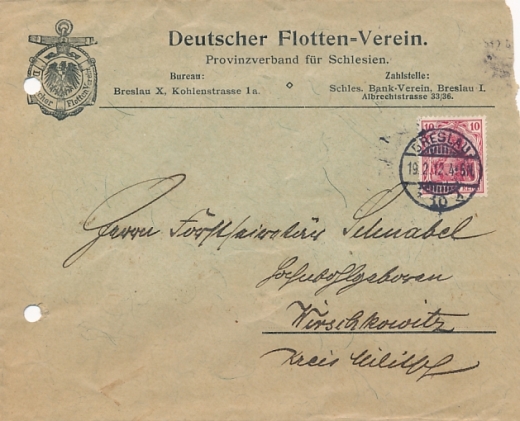 Deutscher Flotten-Verein.
Provinzverband für Schlesien.
Bureau:
Breslau X, Kohlenstrasse 1a.
Zahlstelle:
Schles. Bank-Verein, Breslau I,
Albrechtstrasse 33/36.
Deutscher Flotten-Verein
10 10
BRESLAU
19.2.12.4-5N.
* 10 *
Herrn Forstsekretär Schnabel
Hochwohlgeboren
Wirschkowitz
Kreis Militsch